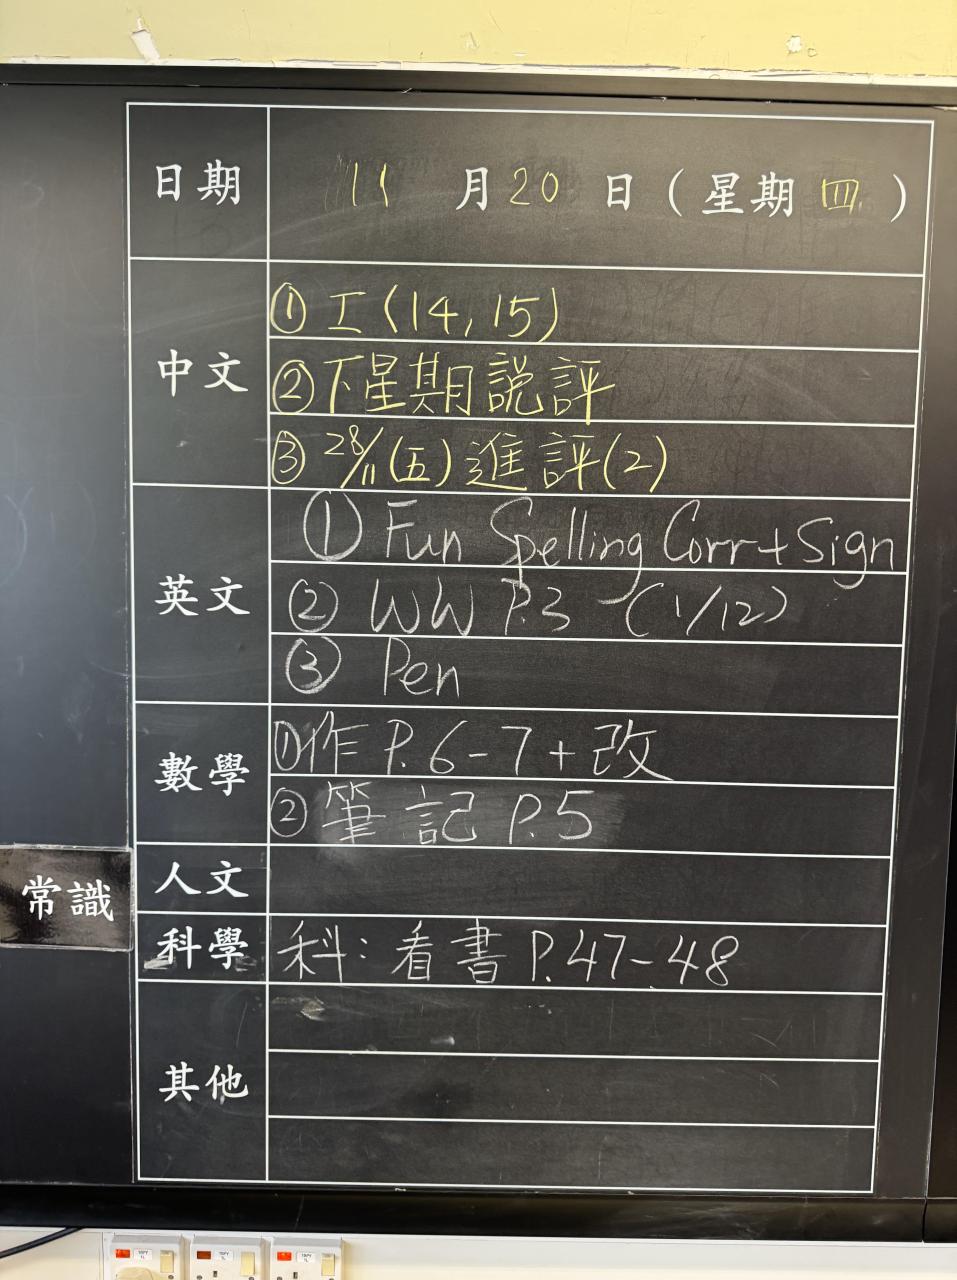 日期 11月20日(星期四)
中文
①工(14,15)
②下星期說評
③28/11(五)進評(2)
英文
① Fun Spelling Corr+Sign
② WW P.3 (1/12)
③ Pen
數學
①作P.6-7+改
②筆記P.5
人文
常識
科學
科:看書P.47-48
其他